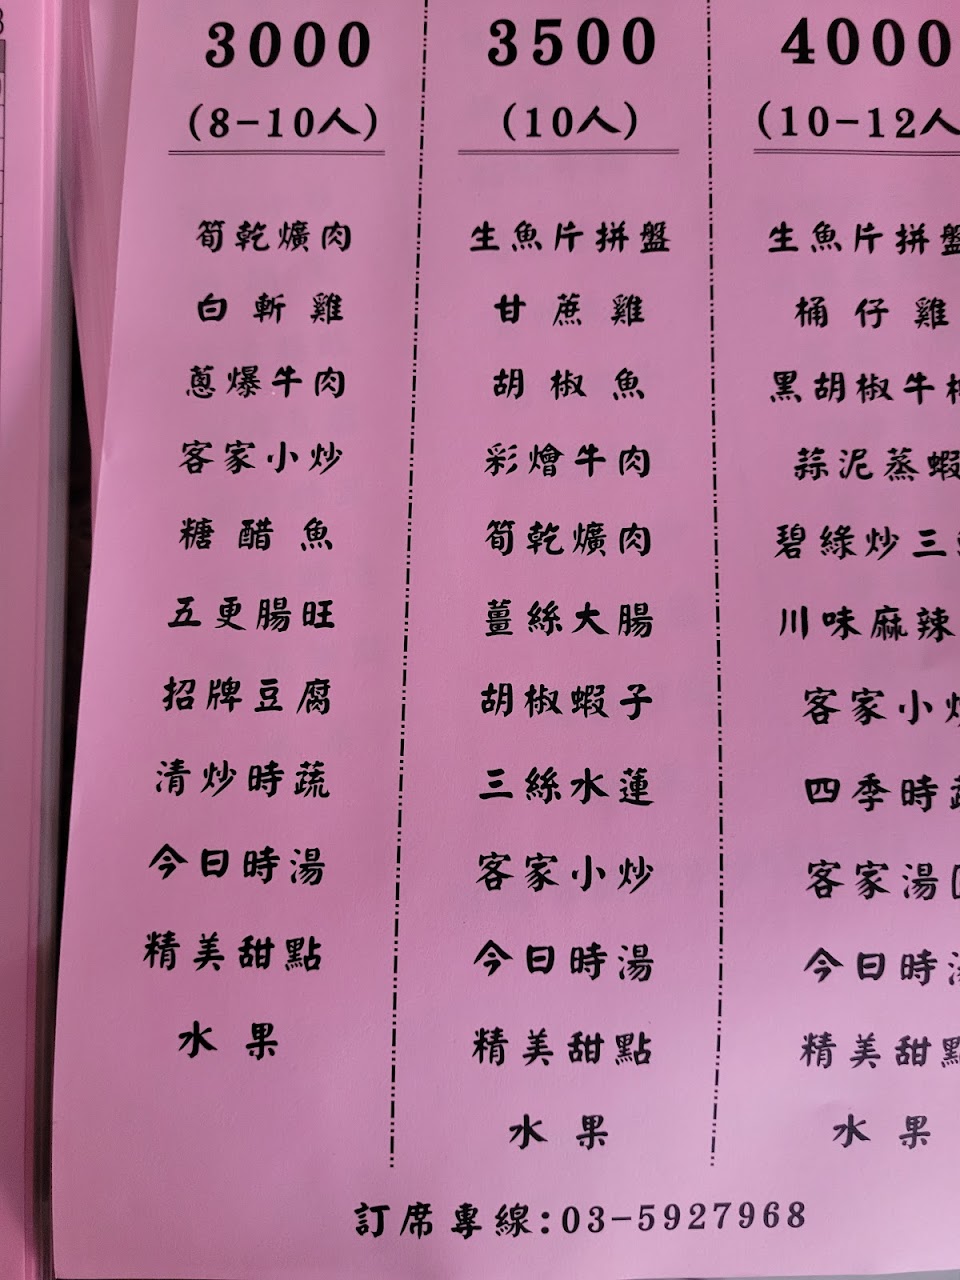 3000
(8-10人)
筍乾爌肉
白斬雞
蔥爆牛肉
客家小炒
糖醋魚
五更腸旺
招牌豆腐
清炒時蔬
今日時湯
精美甜點
水果
3500
(10人)
生魚片拼盤
甘蔗雞
胡椒魚
彩燴牛肉
筍乾爌肉
薑絲大腸
胡椒蝦子
三絲水蓮
客家小炒
今日時湯
精美甜點
水果
4000
(10-12人
生魚片拼盤
桶仔雞
黑胡椒牛
蒜泥蒸蝦
碧綠炒三
川味麻辣
客家小炒
四季時蔬
客家湯
今日時湯
精美甜點
水果
訂席專線:03-5927968